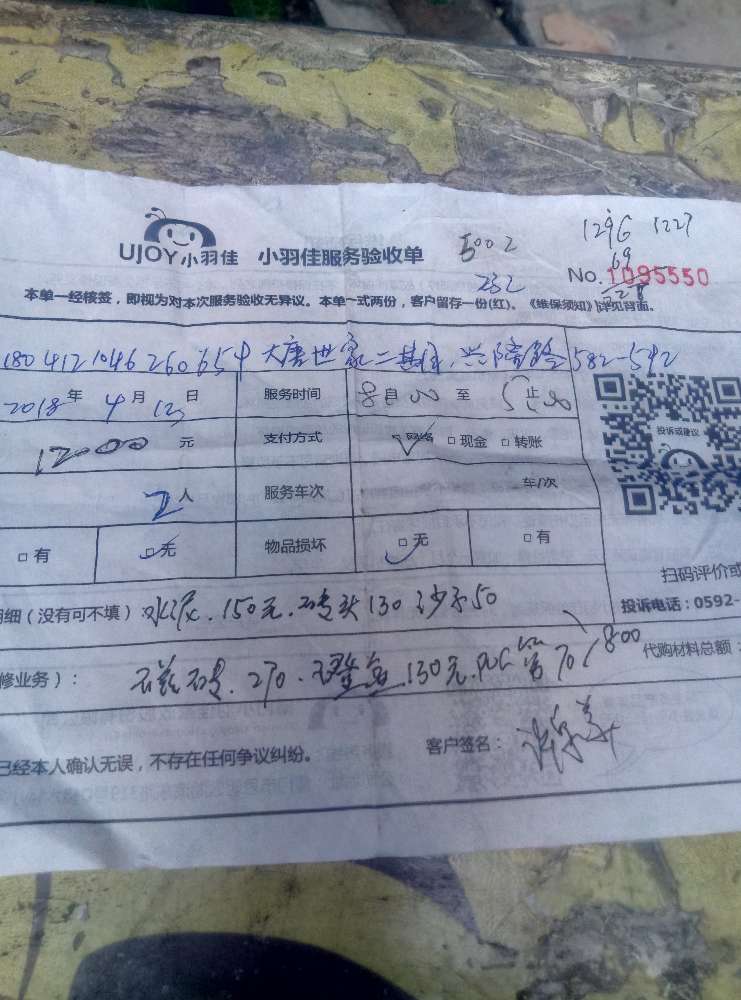 5002
1296 1227
69
UJOY小羽佳 小羽佳服务验收单
232
No.1095550
228
本单一经核签，即视为对本次服务验收无异议。本单一式两份，客户留存一份(红)。《维保须知》详见背面。
1804121046260654 大唐世家二期 582-592
2018年 4月 13日 服务时间 8自00 至 5止30
12000元 支付方式 □现金 □转账
投诉或建议
2人 服务车次 车/次
□有 □无 物品损坏 □无 □有
扫码评价或
明细（没有可不填）: 水泥. 150元. 砖头130 沙子50
投诉电话：0592-
修业务）: 磁砖. 270. 130元. PVC管70 1800
代购材料总额：
已经本人确认无误，不存在任何争议纠纷。 客户签名：